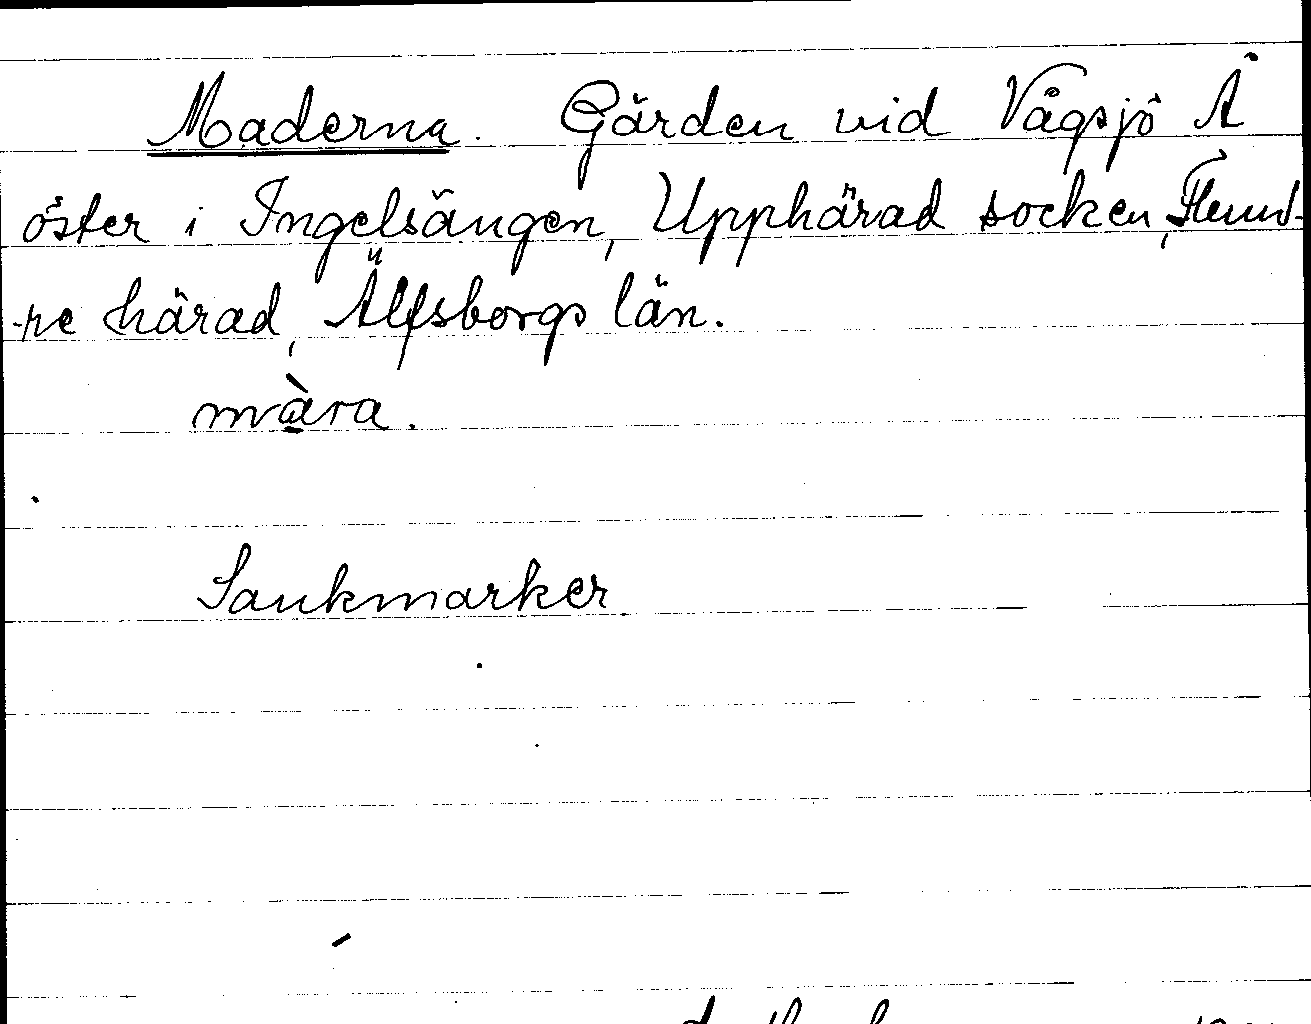 Maderna. Gärden vid Vågsjö Å
öster i Ingelsängen, Upphärad socken, Flund-
-re härad, Älfsborgs län.
màra.
Sankmarker